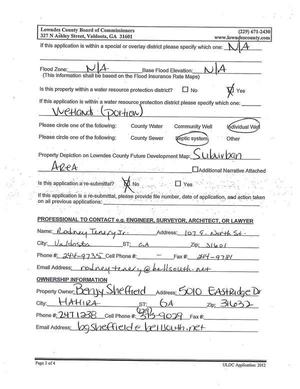 Lowndes County Board of Commissioners (229) 671-2430
327 N Ashley Street, Valdosta, GA 31601 www.lowndescounty.com
If this application is within a special or overlay district please specify which one: N/A
Flood Zone: N/A Base Flood Elevation: N/A
(This information shall be based on the Flood Insurance Rate Maps)
Is this property within a water resource protection district? No Yes
If this application is within a water resource protection district please specify which one:
Wetland (portion)
Please circle one of the following: County Water Community Well Individual Well
Please circle one of the following: County Sewer Septic system Other
Property Depiction on Lowndes County Future Development Map: Suburban
AREA Additional Narrative Attached
Is this application a re-submittal? No Yes
If this application is a re-submittal, please provide file number, date of application, and action taken
on all previous applications:
PROFESSIONAL TO CONTACT e.g. ENGINEER, SURVEYOR, ARCHITECT, OR LAWYER
Name: Rodney Tenery Jr. Address: 107 S. North St.
City: Valdosta ST: GA Zip: 31601
Phone #: 244-9735 Cell Phone #: Fax #: 244-9781
Email Address: rodneytenery@bellsouth.net
OWNERSHIP INFORMATION
Property Owner: Benjy Sheffield Address: 5010 Eastridge Dr
City: HAHIRA ST: GA Zip: 31632
Phone #: 247 1238 Cell Phone #: 315-9029 Fax #:
Email Address: bgsheffield@bellsouth.net
Page 2 of 4 ULDC Application 2012